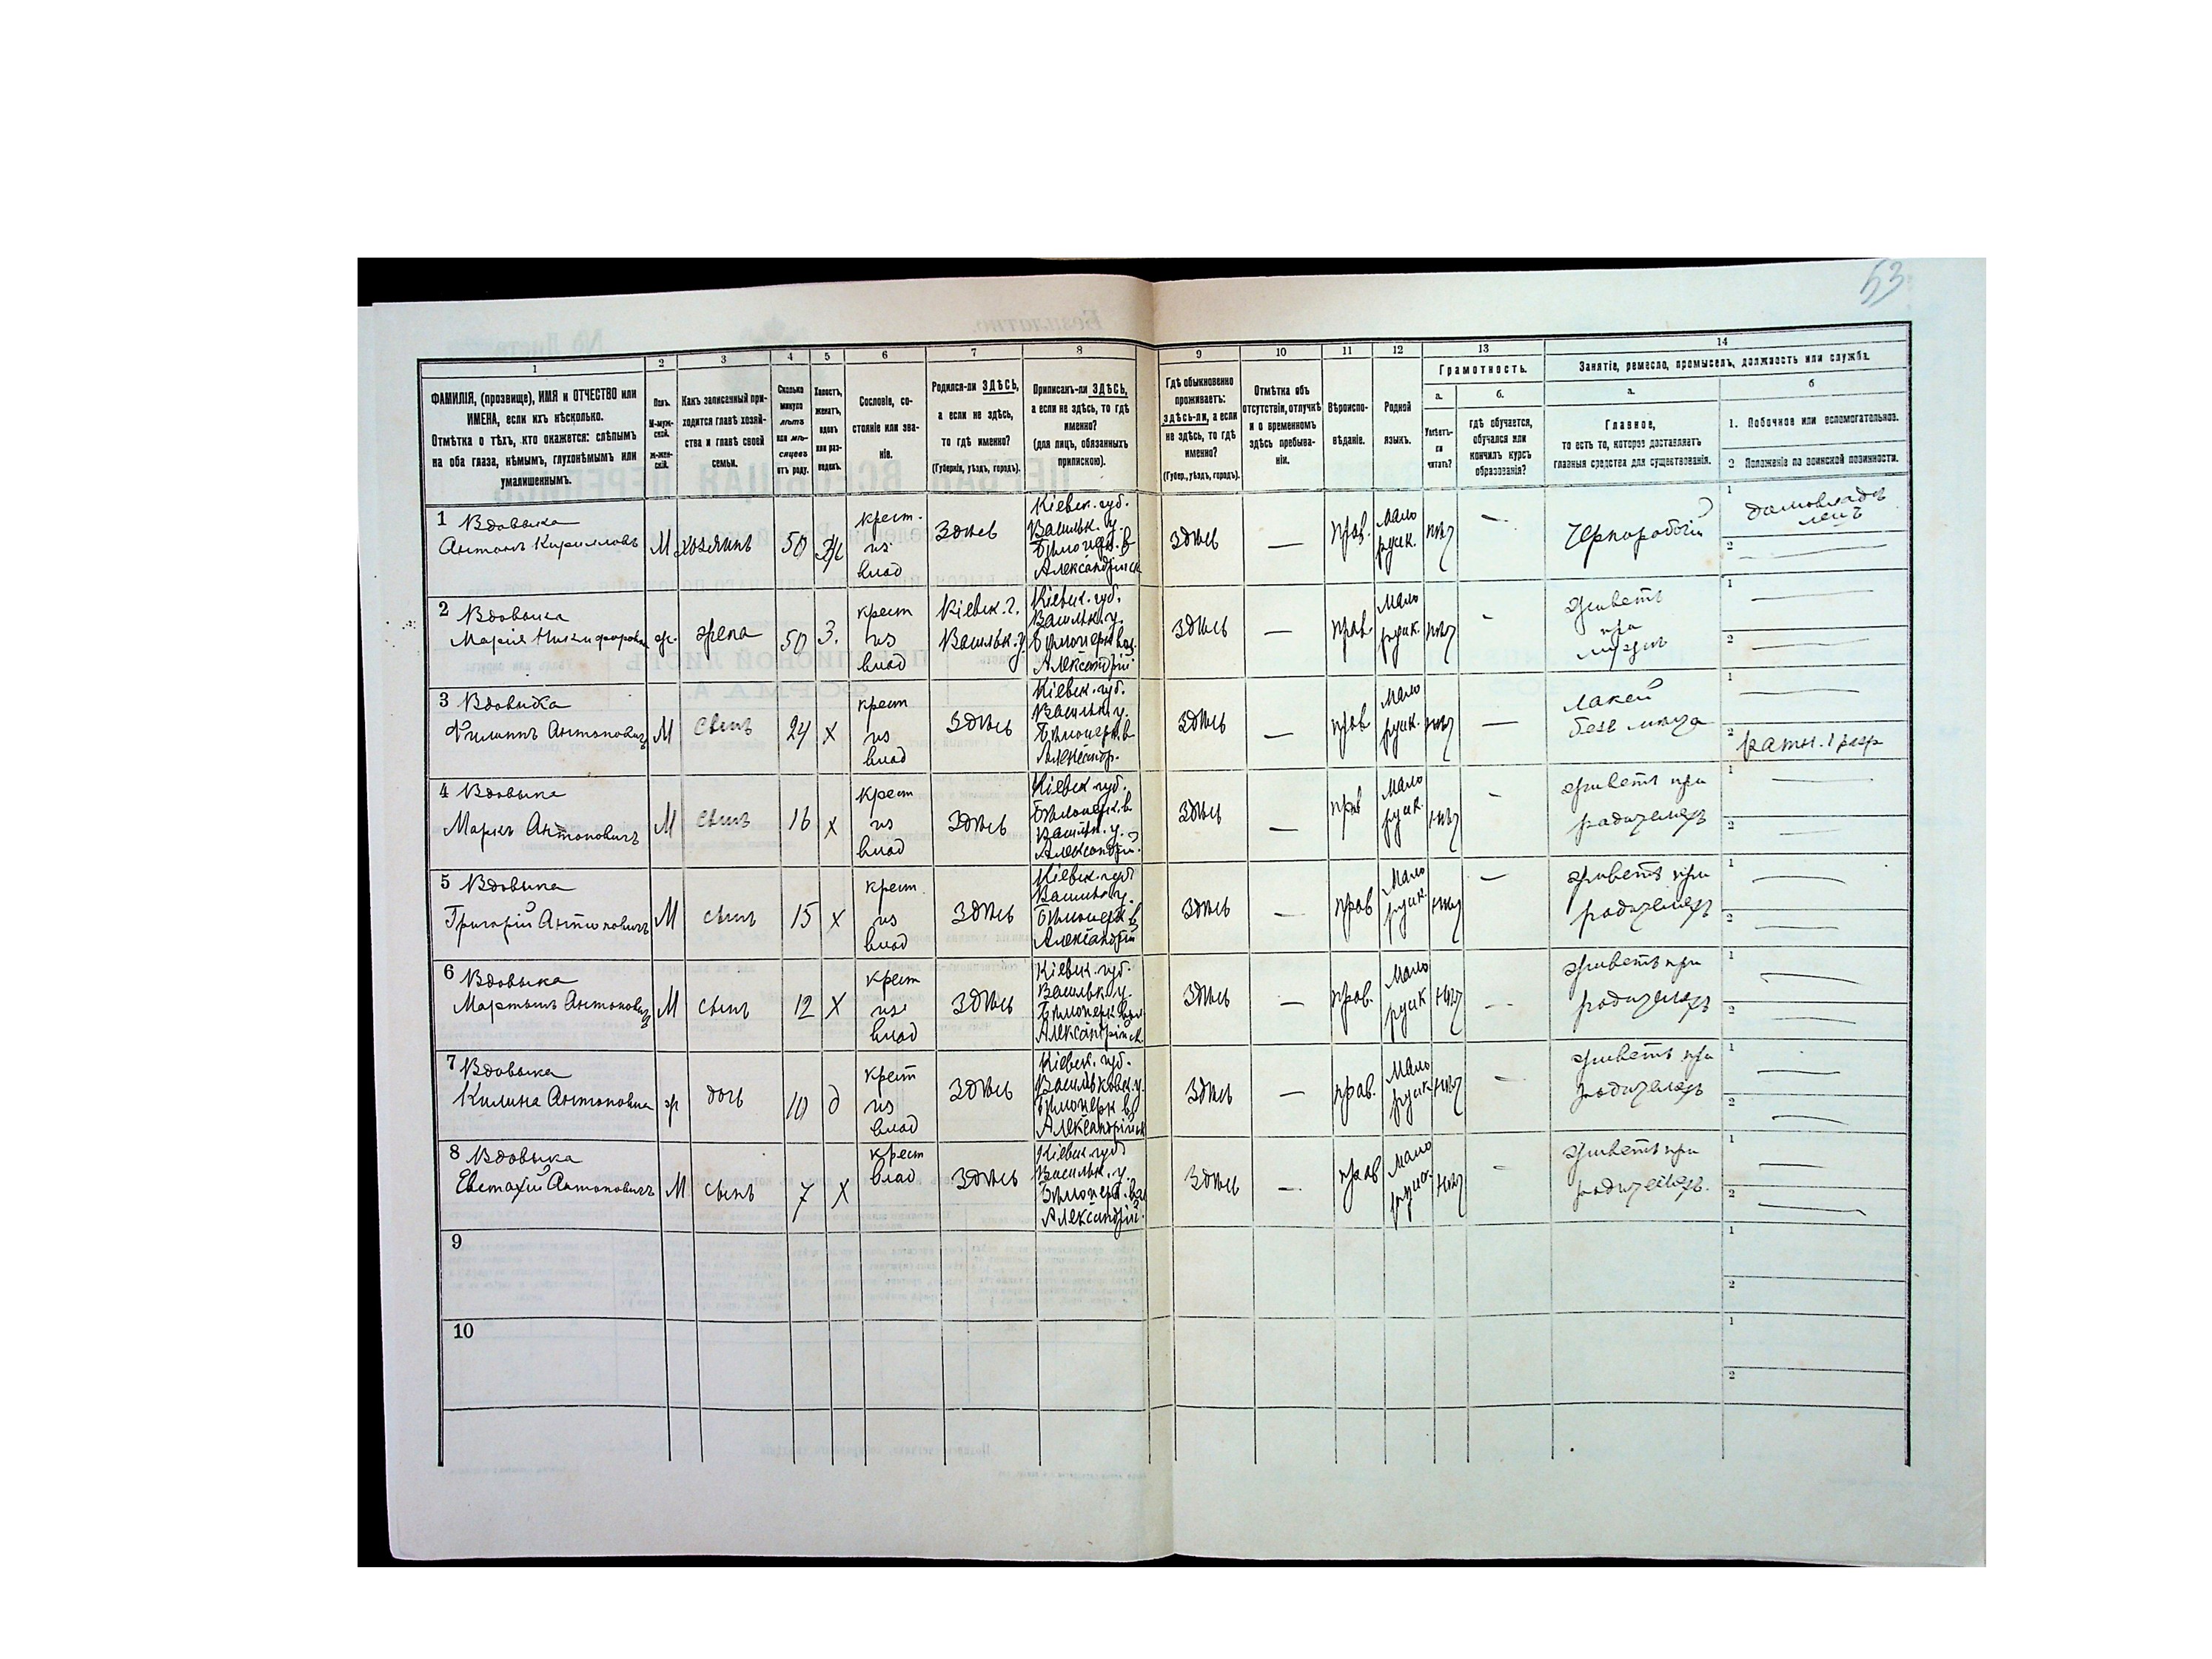 53
1
2
3
4
5
6
7
8
9
10
11
12
13
14
ФАМИЛІЯ, (прозвище), ИМЯ и ОТЧЕСТВО или
ИМЕНА, если ихъ нѣсколько.
Отмѣтка о тѣхъ, кто окажется: слѣпымъ
на оба глаза, нѣмымъ, глухонѣмымъ или
умалишеннымъ.
Полъ.
М-муж-
ской.
Ж-жен-
скій.
Какъ записанный при-
ходится главѣ хозяй-
ства и главѣ своей
семьи.
Сколько
минуло
лѣтъ
или мѣ-
сяцевъ
отъ роду.
Холостъ,
женатъ,
вдовъ
или раз-
веденъ.
Сословіе, со-
стояніе или зва-
ніе.
Родился-ли ЗДѢСЬ,
а если не здѣсь,
то гдѣ именно?
(Губернія, уѣздъ, городъ).
Приписанъ-ли ЗДѢСЬ,
а если не здѣсь, то гдѣ
именно?
(для лицъ, обязанныхъ
припискою).
Гдѣ обыкновенно
проживаетъ:
здѣсь-ли, а если
не здѣсь, то гдѣ
именно?
(Губер., уѣздъ, городъ).
Отмѣтка объ
отсутствіи, отлучкѣ
и о временномъ
здѣсь пребыва-
ніи.
Вѣроиспо-
вѣданіе.
Родной
языкъ.
Грамотность.
а.
Умѣетъ-
ли
читать?
б.
гдѣ обучается,
обучался или
кончилъ курсъ
образованія?
Занятіе, ремесло, промыселъ, должность или служба.
а.
Главное,
то есть то, которое доставляетъ
главныя средства для существованія.
б
1. Побочное или вспомогательное.
2 Положеніе по воинской повинности.
1 Вдовыка
Антонъ Кирилловъ
М
хозяинъ
50
Ж
крест.
из
влад
Здѣсь
Кіевск. губ.
Васильк. у.
Бѣлоцерк. в
Александрійск
здѣсь
—
прав.
мало
русск.
нѣт
—
Чернорабочій
1 домовладѣ
лецъ
2
2 Вдовыка
Марія Никифорова
ж.
жена
50
З.
крест
из
влад
Кіевск. г.
Васильк. у.
Кіевск. губ.
Васильк. у.
Бѣлоцерк вол.
Александрій
здѣсь
—
прав.
Мало
русск.
нѣт
-
живетъ
при
мужѣ
1
2
3 Вдовыка
Филиппъ Антоновичъ
М
сынъ
24
х
крест
из
влад
Здѣсь
Кіевск. губ.
Васильк. у.
Бѣлоцерк. в
Александр.
здѣсь
—
прав
Мало
русск.
нѣт
—
лакей
безъ мѣста
1
2 ратн. 1 разр
4 Вдовыка
Маркъ Антоновичъ
М
сынъ
16
х
крест
из
влад
Здѣсь
Кіевск губ.
Бѣлоцерк. в
Васильк. у.
Александрій.
здѣсь
—
прав
Мало
русск.
нѣт
-
живетъ при
родителяхъ
1
2
5 Вдовыка
Григорій Антоновичъ
М
сынъ
15
х
крест.
из
влад
Здѣсь
Кіевск. губ
Васильк у.
Бѣлоцерк в
Александрій
здѣсь
—
прав
Мало
русск.
нѣт
—
живетъ при
родителяхъ
1
2
6 Вдовыка
Мартынъ Антонович
М
сынъ
12
Х
крест
из
влад
Здѣсь
Кіевск. губ.
Васильк. у.
Бѣлоцерк вол
Александрійск.
здѣсь
—
прав.
Мало
русск
нѣт
-
живетъ при
родителяхъ
1
2
7 Вдовыка
Килина Антоновна
ж
дочь
10
д
крест
из
влад
Здѣсь
Кіевск. губ.
Васильковск. у.
Бѣлоцерк в
Александрійск
здѣсь
—
прав.
Мало
русск.
нѣт
-
живетъ при
родителяхъ
1
2
8 Вдовыка
Евстафій Антоновичъ
М
сынъ
7
Х
крест
влад
Здѣсь
Кіевск. губ
Васильк. у.
Бѣлоцерк. вол
Александрій.
Здѣсь
—
прав
Мало
русск.
нѣт
-
живетъ при
родителяхъ.
1
2
9
1
2
10
1
2